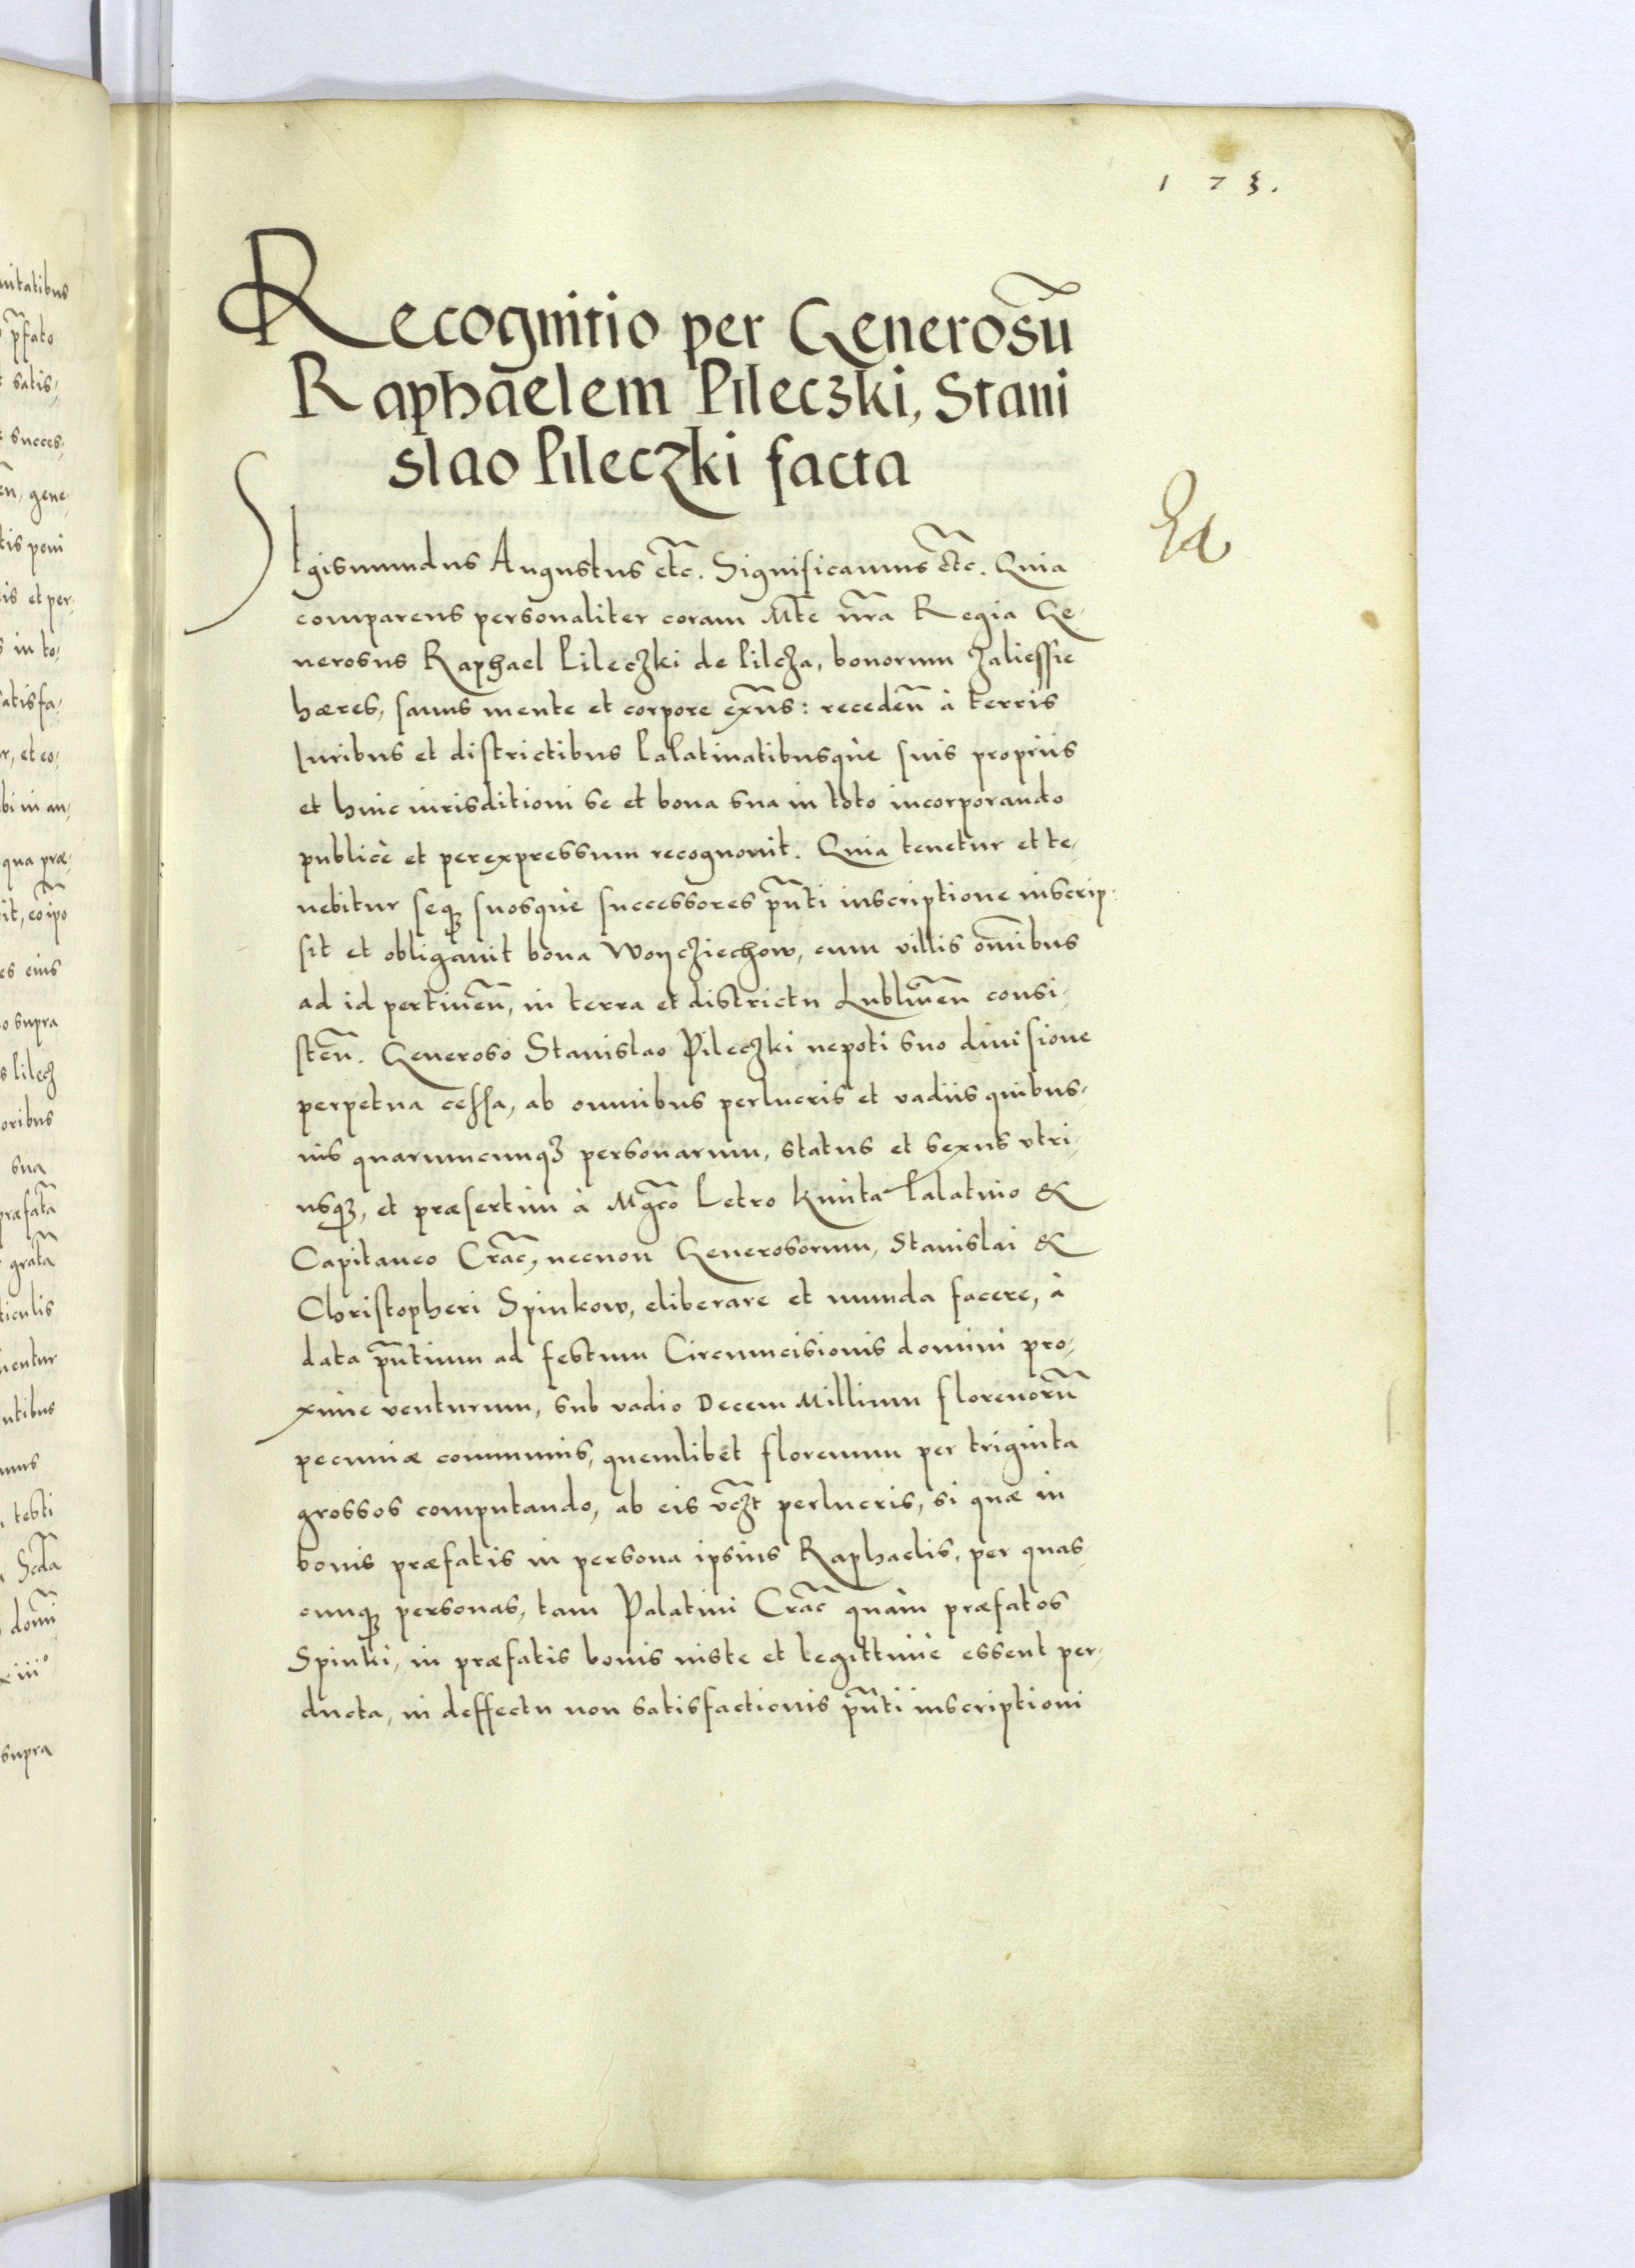 173.
Recognitio per Generosũ
Raphaelem Pileczki, Stani
slao Pileczki facta
Sigismundus Augustus etc̃. Significamus etc̃. Quia
comparens personaliter coram Mte nr̃a Regia Ge-
nerosus Raphael Pileczki de Pilcza, bonorum Zaliessie
hæres, sanus mente et corpore exñs: recedeñ à terris
Iuribus et districtibus Palatinatibusquè suis propriis
et huic iurisditioni se et bona sua in toto incorporando
publicè et perexpressum recognovit. Quia tenetur et te-
nebitur seq₃ suosquè successores pñti inscriptione inscrip-
sit et obligavit bona Woycziechow, cum villis omñibus
ad id pertineñ, in terra et districtu Lublineñ consi-
steñ. Generoso Stanislao Pileczki nepoti suo divisione
perpetua cessa, ab omnibus perlucris et vadiis quibus-
vis quarumcunq₃ personarum, status et sexus vtri-
usq₃, et præsertim à Mgc̃o Petro Kmita Palatino &
Capitaneo Crac̃, necnon Generosorum, Stanislai &
Christopheri Spinkow, eliberare et munda facere, à
data pñtium ad festum Circumcisionis domini pro-
xime venturum, sub vadio Decem Millium florenorũ
pecuniæ communis, quemlibet florenum per triginta
grossos computando, ab eis vczt̃ perlucris, si quæ in
bonis præfatis in persona ipsius Raphaelis, per quas-
cunq₃ personas, tam Palatini Crac̃ quàm præfatos
Spinki, in præfatis bonis iuste et legittimè essent per-
ducta, in deffectu non satisfactionis pñti inscriptioni